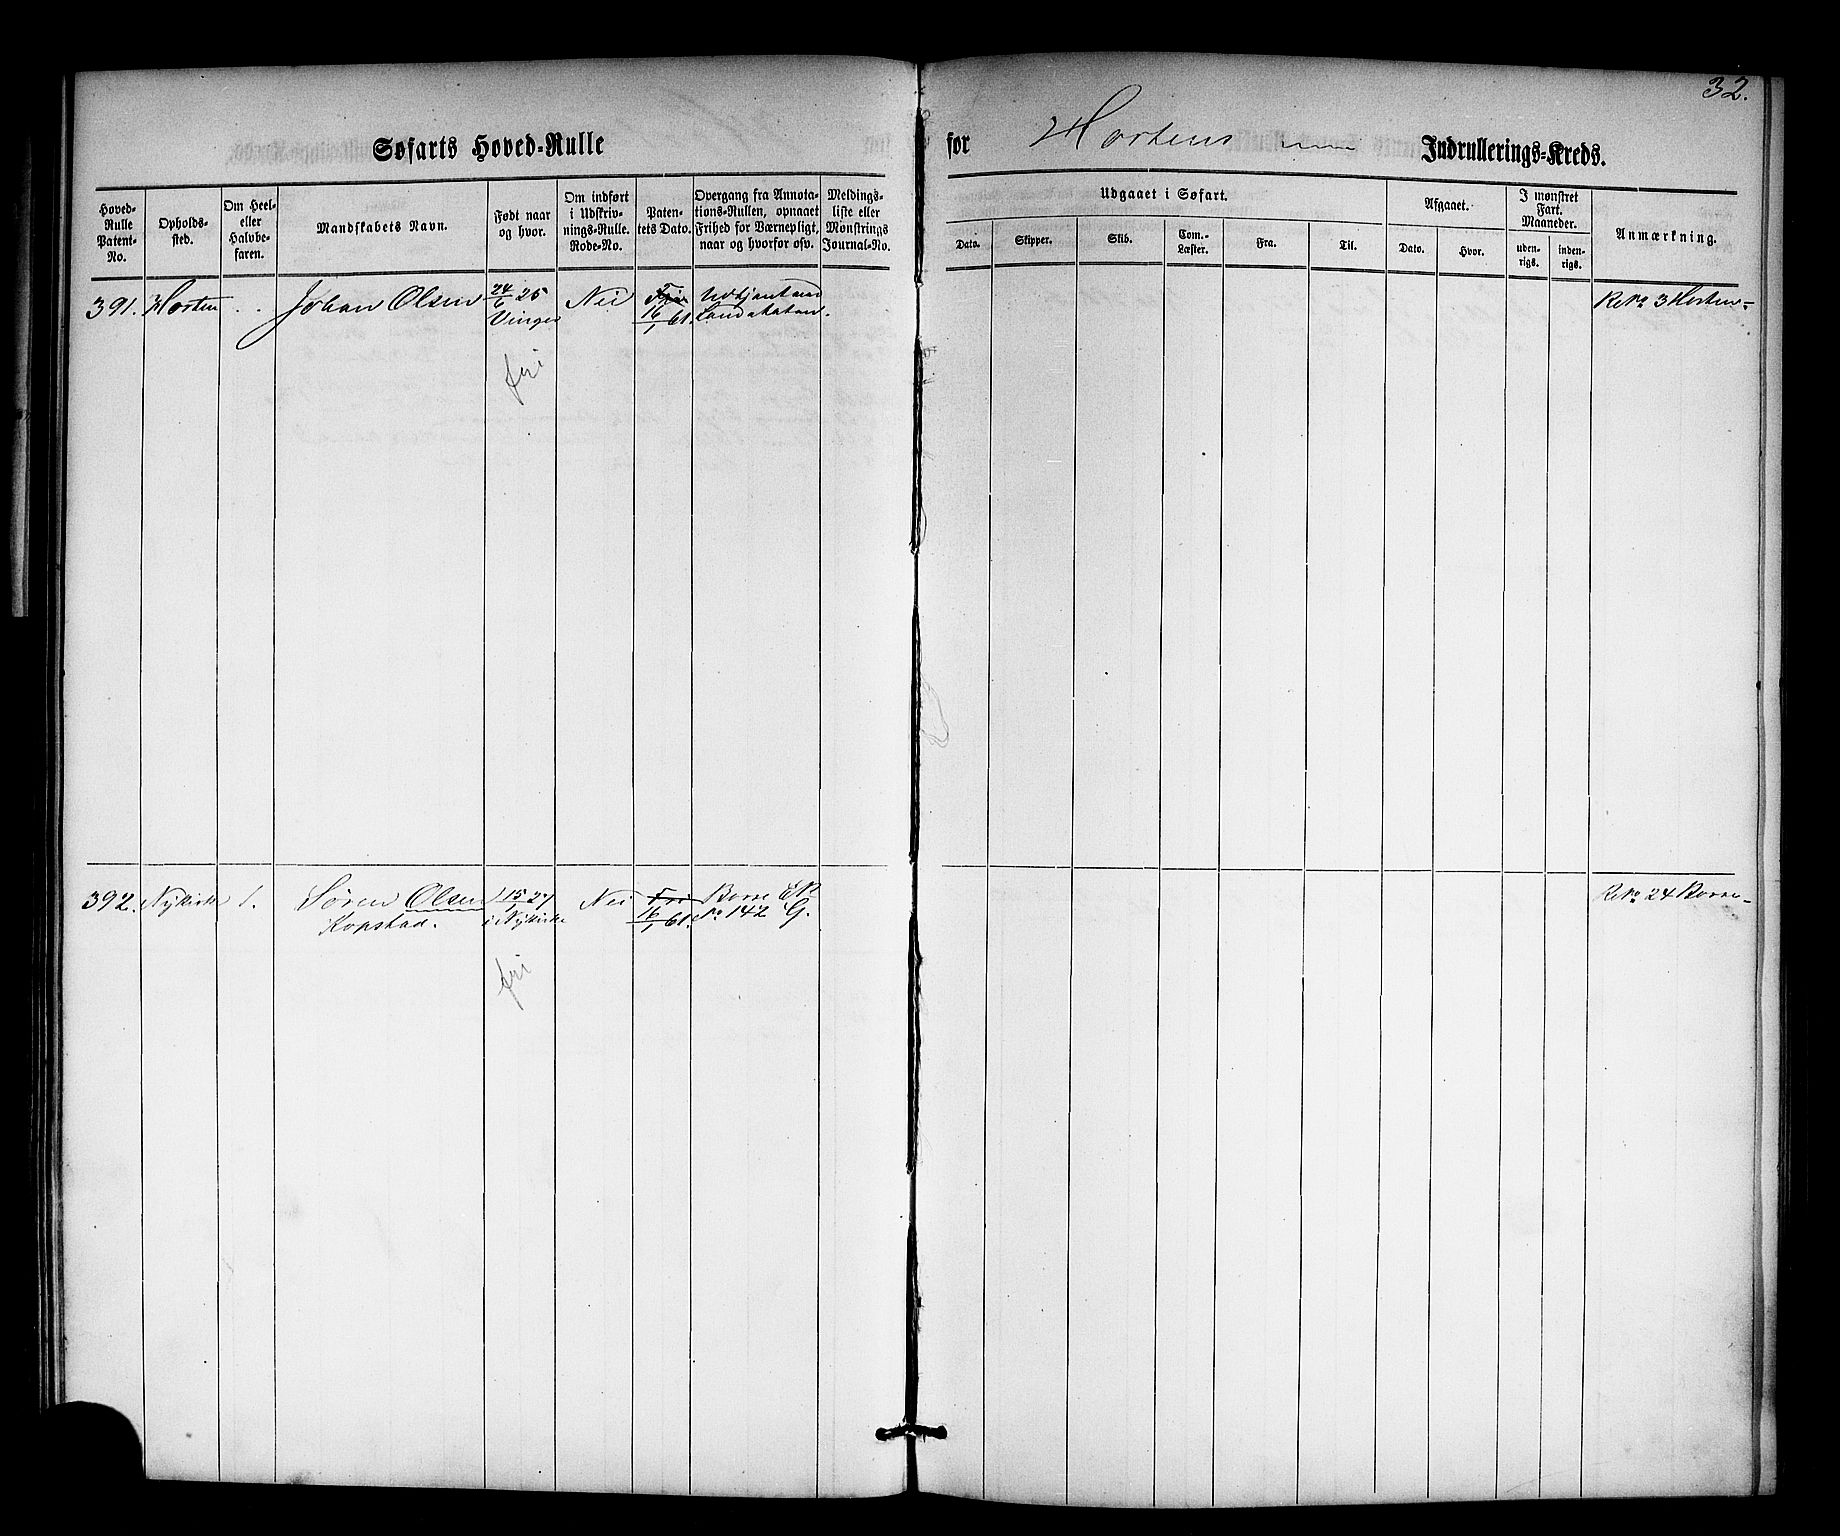 32.
Søfarts Hoved-Rulle for Hortens Indrullerings-Kreds.
Hoved-Rulle Patent-No.
Opholds-sted.
Om Heel- eller Halvbe-faren.
Mandskabets Navn.
Født naar og hvor.
Om indført i Udskriv-nings-Rulle. Rode-No.
Paten-tets Dato.
Overgang fra Annota-tions-Rullen, opnaaet Frihed for Værnepligt, naar og hvorfor osv.
Meldings-liste eller Mønstrings Journal-No.
Udgaaet i Søfart.
Dato. Skipper. Skib. Com.-Læster. Fra. Til.
Afgaaet.
Dato. Hvor.
I mønstret Fart. Maaneder.
uden-rigs. inden-rigs.
Anmærkning.
391. Horten . . Johan Olsen 24/6 25 Nei Fri Udtjent ved RNo 3 Horten
Vinger 16/1 61. Landetaten.
fri
392. Nykirke /. Søren Olsen 15/1 27 Nei Fri Borre RNo 24 Borre
Kopstad. i Nykirke 16/1 61. No 142 G.
fri